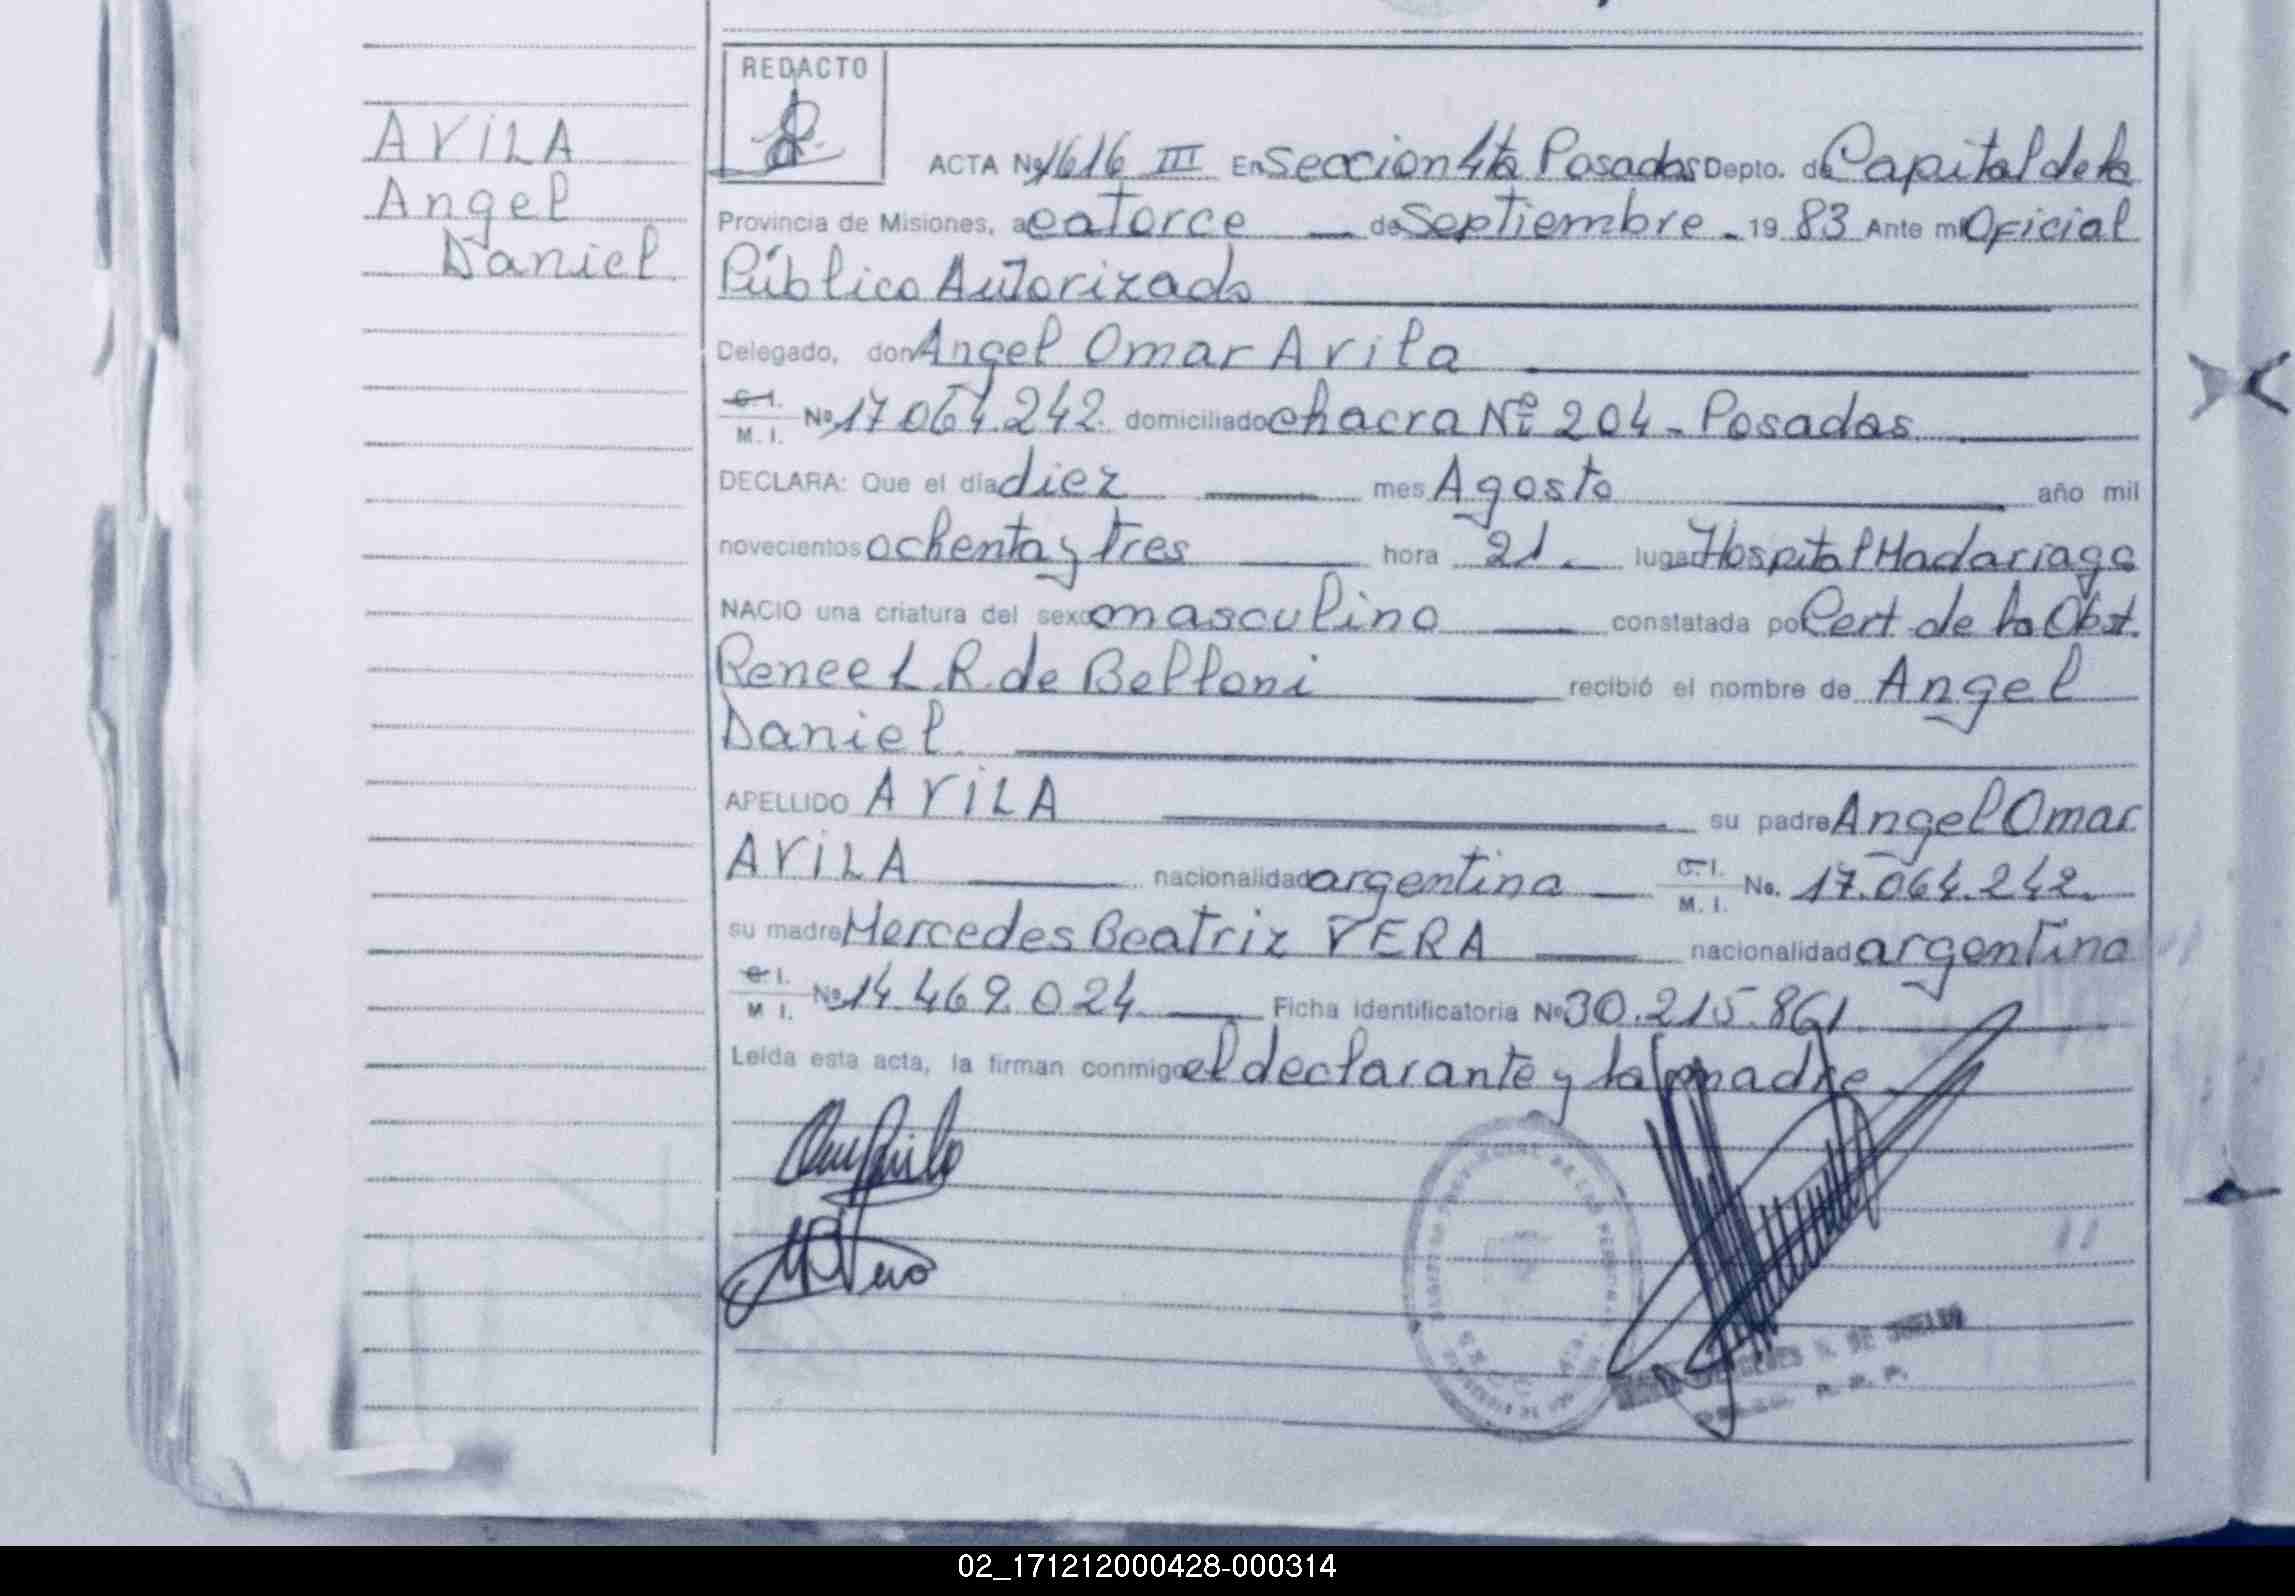 AVILA
Angel
Daniel
REDACTO
ACTA Nº 1616 III En Seccion 4ta Posadas Depto. de Capital de la
Provincia de Misiones, a catorce — de Septiembre - 19 83 Ante mi Oficial
Público Autorizado
Delegado, don Angel Omar Avila
C.I.
M.I. Nº 17.064.242. domiciliado chacra Nº 204 - Posadas
DECLARA: Que el día diez — mes Agosto — año mil
novecientos ochenta y tres — hora 21 - lugar Hospital Madariaga
NACIO una criatura del sexo masculino — constatada por Cert. de la Obst.
Renee L. R. de Belloni — recibió el nombre de Angel
Daniel
APELLIDO AVILA — su padre Angel Omar
AVILA — nacionalidad argentina — C.I. M.I. No. 17.064.242.
su madre Mercedes Beatriz VERA — nacionalidad argentina
C.I.
M.I. Nº 14.469.024. — Ficha Identificatoria Nº 30.215.861
Leída esta acta, la firman conmigo el declarante y la madre
02_171212000428-000314